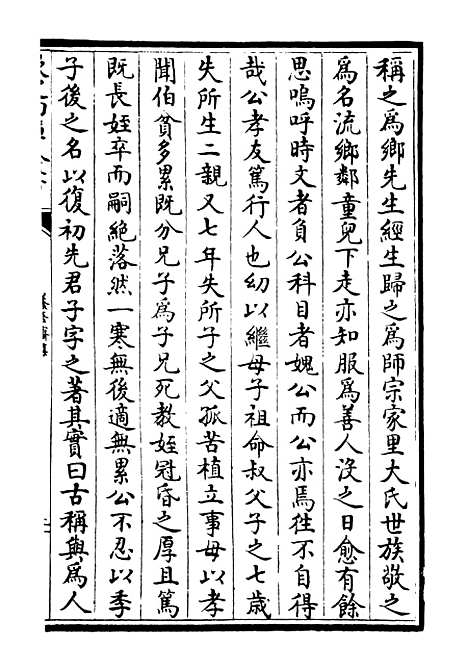 稱之爲鄉先生經生歸之爲師宗家里大氏世族敬之
爲名流鄉鄰童兒下走亦知服爲善人没之日愈有餘
思嗚呼時文者負公科目者媿公而公亦焉徃不自得
哉公孝友篤行人也㓜以繼母子祖命叔父子之七歲
失所生二親又七年失所子之父孤苦植立事母以孝
聞伯貧多累既分兄子爲子兄死教姪冠昏之厚且篤
既長姪卒而嗣絶落然一寒無後適無累公不忍以季
子後之名以復初先君子字之著其實曰古稱與爲人